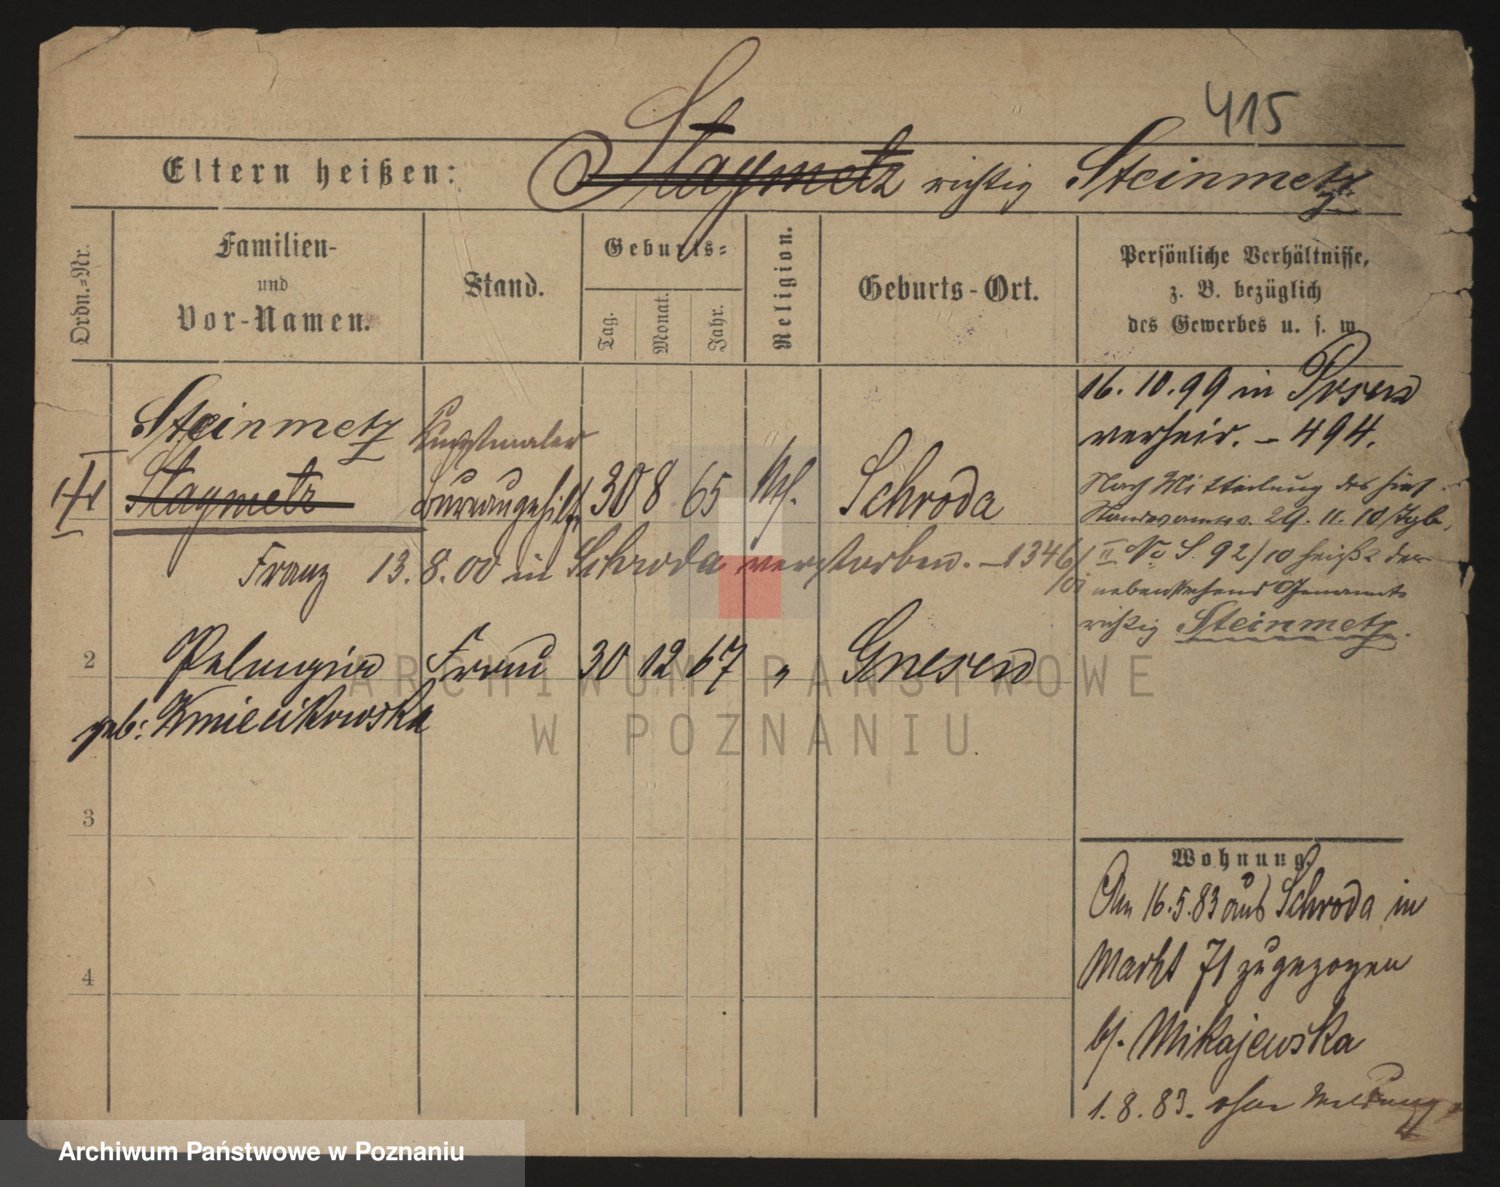 415
Eltern heißen: Stagmetz richtig Steinmetz
Ordn.=Nr.
Familien-
und
Vor-Namen.
Stand.
Geburts=
Tag.
Monat.
Jahr.
Religion.
Geburts-Ort.
Persönliche Verhältnisse,
z. B. bezüglich
des Gewerbes u. s. w.
Steinmetz Kunstmaler
Stagmetz Bureaugehilfe 30 8 65 kth. Schroda
Franz 13. 8. 00 in Schroda verstorben. - 1346/01
2 Pelagia Frau 30 12 67 " Gnesen
geb: Kmiecikowska
3
4
16. 10. 99 in Posen
verheir. - 494.
Nach Mitteilung des hies.
Standesamts v. 29. 11. 10 /Tgb.
II No S. 92/10 heißt der
nebenstehend Genannte
richtig Steinmetz.
Wohnung.
Am 16. 5. 83 aus Schroda in
Markt 71 zugezogen
b/. Mikajewska
1. 8. 83. ohne Meldung
ARCHIWUM PAŃSTWOWE
W POZNANIU
Archiwum Państwowe w Poznaniu